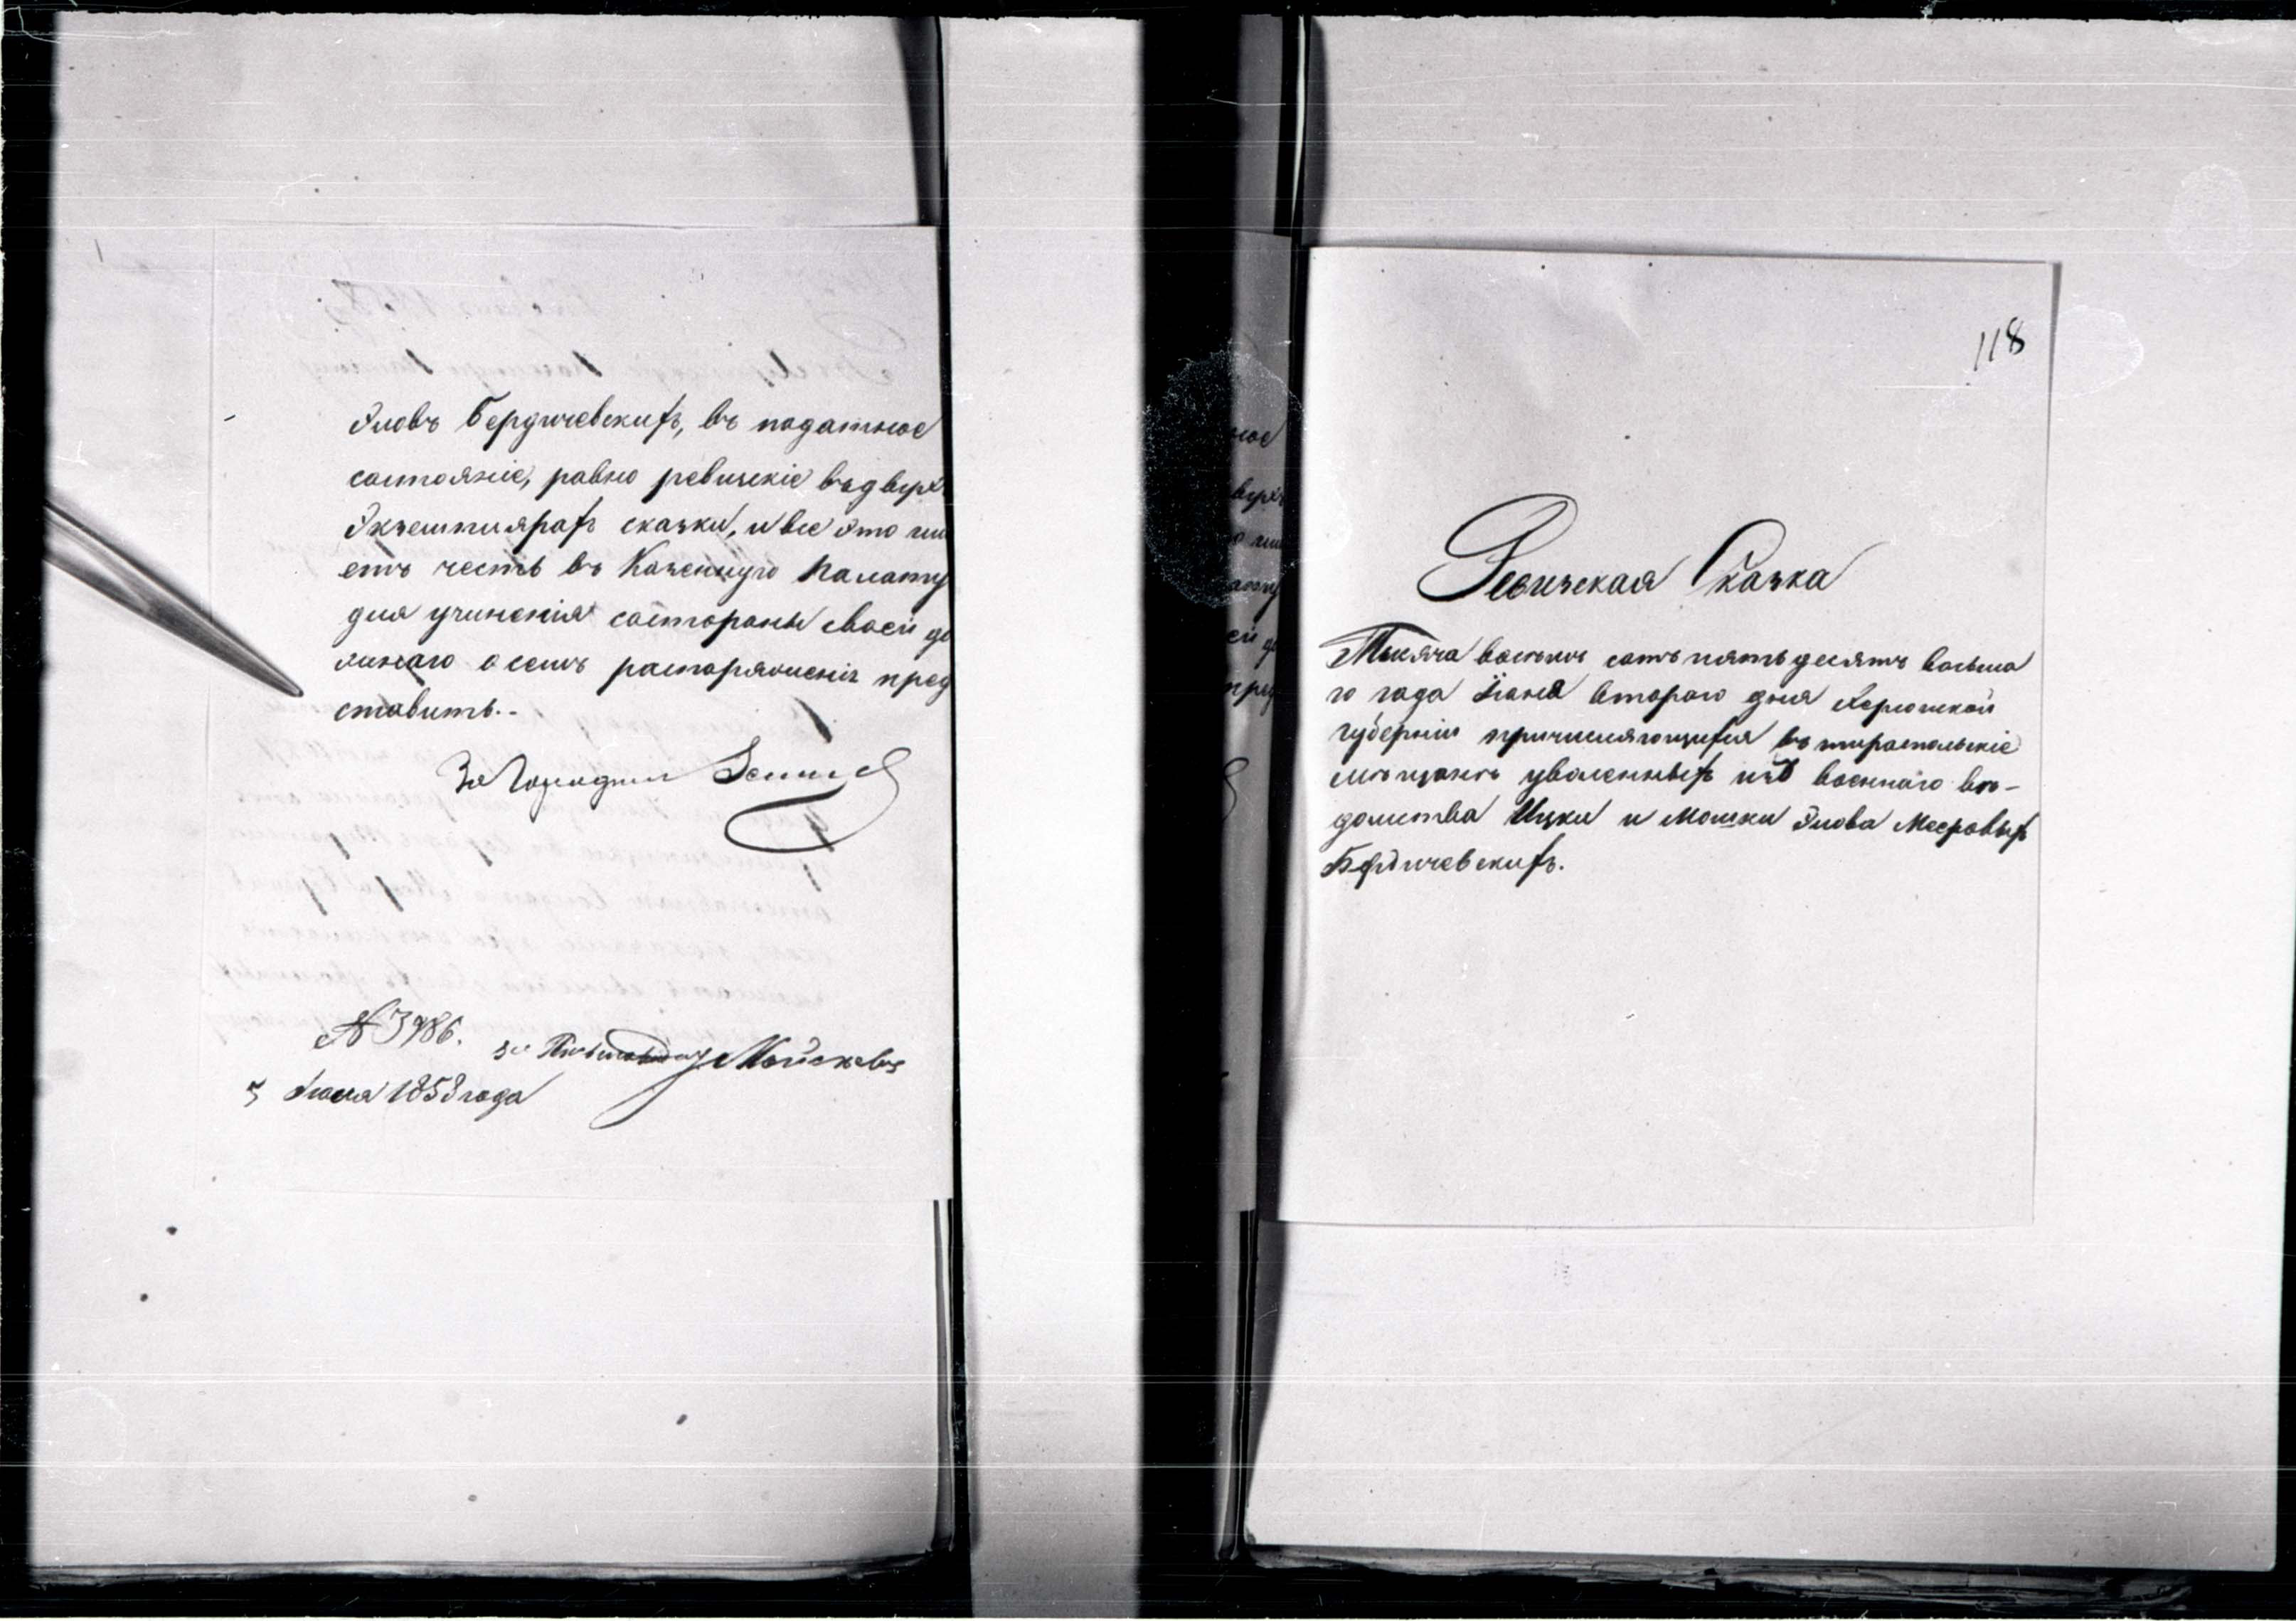 Эловъ Бердичевскихъ, въ податное
состояніе, равно ревизскіе въ двухъ
Экземплярахъ сказки, и все это им
еть честь въ Казенную Палату
для учиненія состороны своей до
лжнаго о семъ распоряженія пред
ставить.-
За Городнич
№ 3986.
за Письмоводит
5 Іюля 1858 года
118
Ревизская Сказка
Тысяча восемь сотъ пятьдесятъ восьма
го года Іюня втораго дня Херсонской
губерніи причисляющихся въ тираспольскіе
мѣщане уволенныхъ изъ военнаго вѣ-
домства Ицки и Мошки Элова Мееровыхъ
Бердичевскихъ.